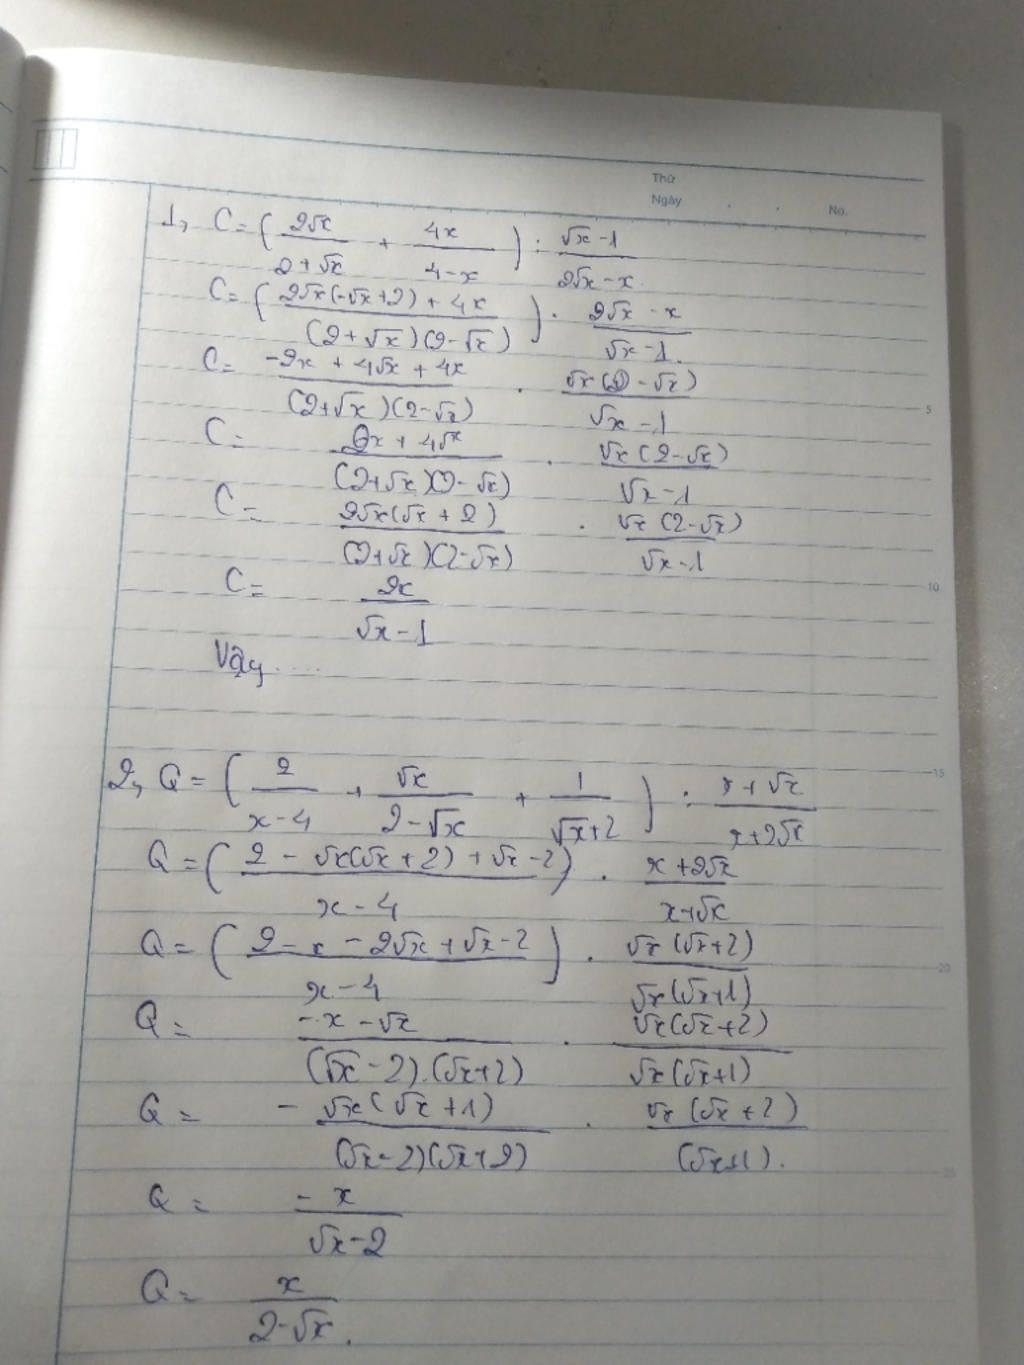 Thứ
Ngày . . No.
1, C = ( 2√x / (2+√x) + 4x / (4-x) ) : (√x-1) / (2√x-x)
C = ( (2√x(-√x+2) + 4x) / ((2+√x)(2-√x)) ) . (2√x-x) / (√x-1)
C = (-2x + 4√x + 4x) / ((2+√x)(2-√x)) . √x(2-√x) / (√x-1)
5
C = (2x + 4√x) / ((2+√x)(2-√x)) . √x(2-√x) / (√x-1)
C = 2√x(√x+2) / ((2+√x)(2-√x)) . √x(2-√x) / (√x-1)
10
C = 2x / (√x-1)
Vậy ....
15
2, Q = ( 2 / (x-4) + √x / (2-√x) + 1 / (√x+2) ) : (x+√x) / (x+2√x)
Q = ( (2 - √x(√x+2) + √x-2) / (x-4) ) . (x+2√x) / (x+√x)
Q = ( (2-x-2√x+√x-2) / (x-4) ) . √x(√x+2) / (√x(√x+1))
20
Q = (-x-√x) / ((√x-2).(√x+2)) . √x(√x+2) / (√x(√x+1))
Q = - √x(√x+1) / ((√x-2)(√x+2)) . √x(√x+2) / (√x+1).
25
Q = -x / (√x-2)
Q = x / (2-√x).